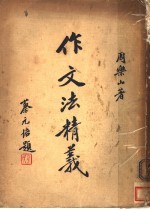 周樂山著
作文法精義
蔡元培題